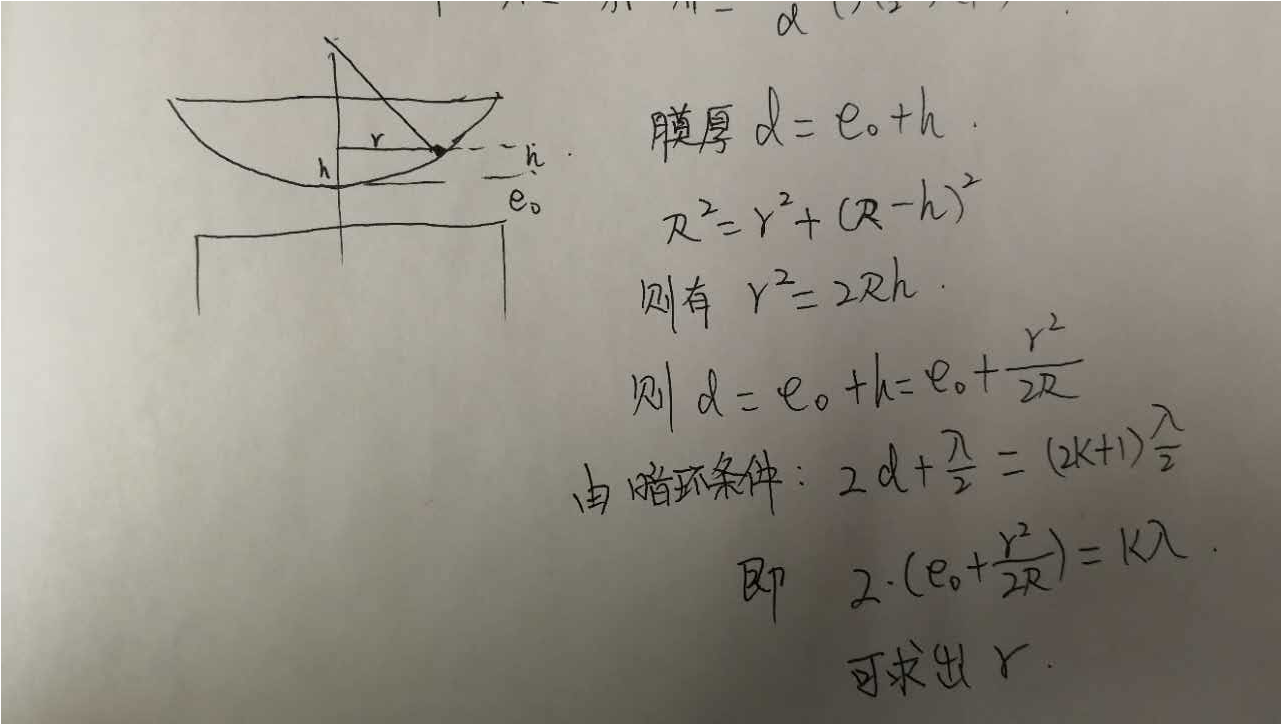 d
r
h
h
e₀
膜厚 d = e₀ + h .
R² = r² + (R - h)²
则有 r² = 2Rh .
则 d = e₀ + h = e₀ + r²/2R
由暗环条件: 2d + λ/2 = (2K+1) λ/2
即 2·(e₀ + r²/2R) = Kλ .
可求出 r .